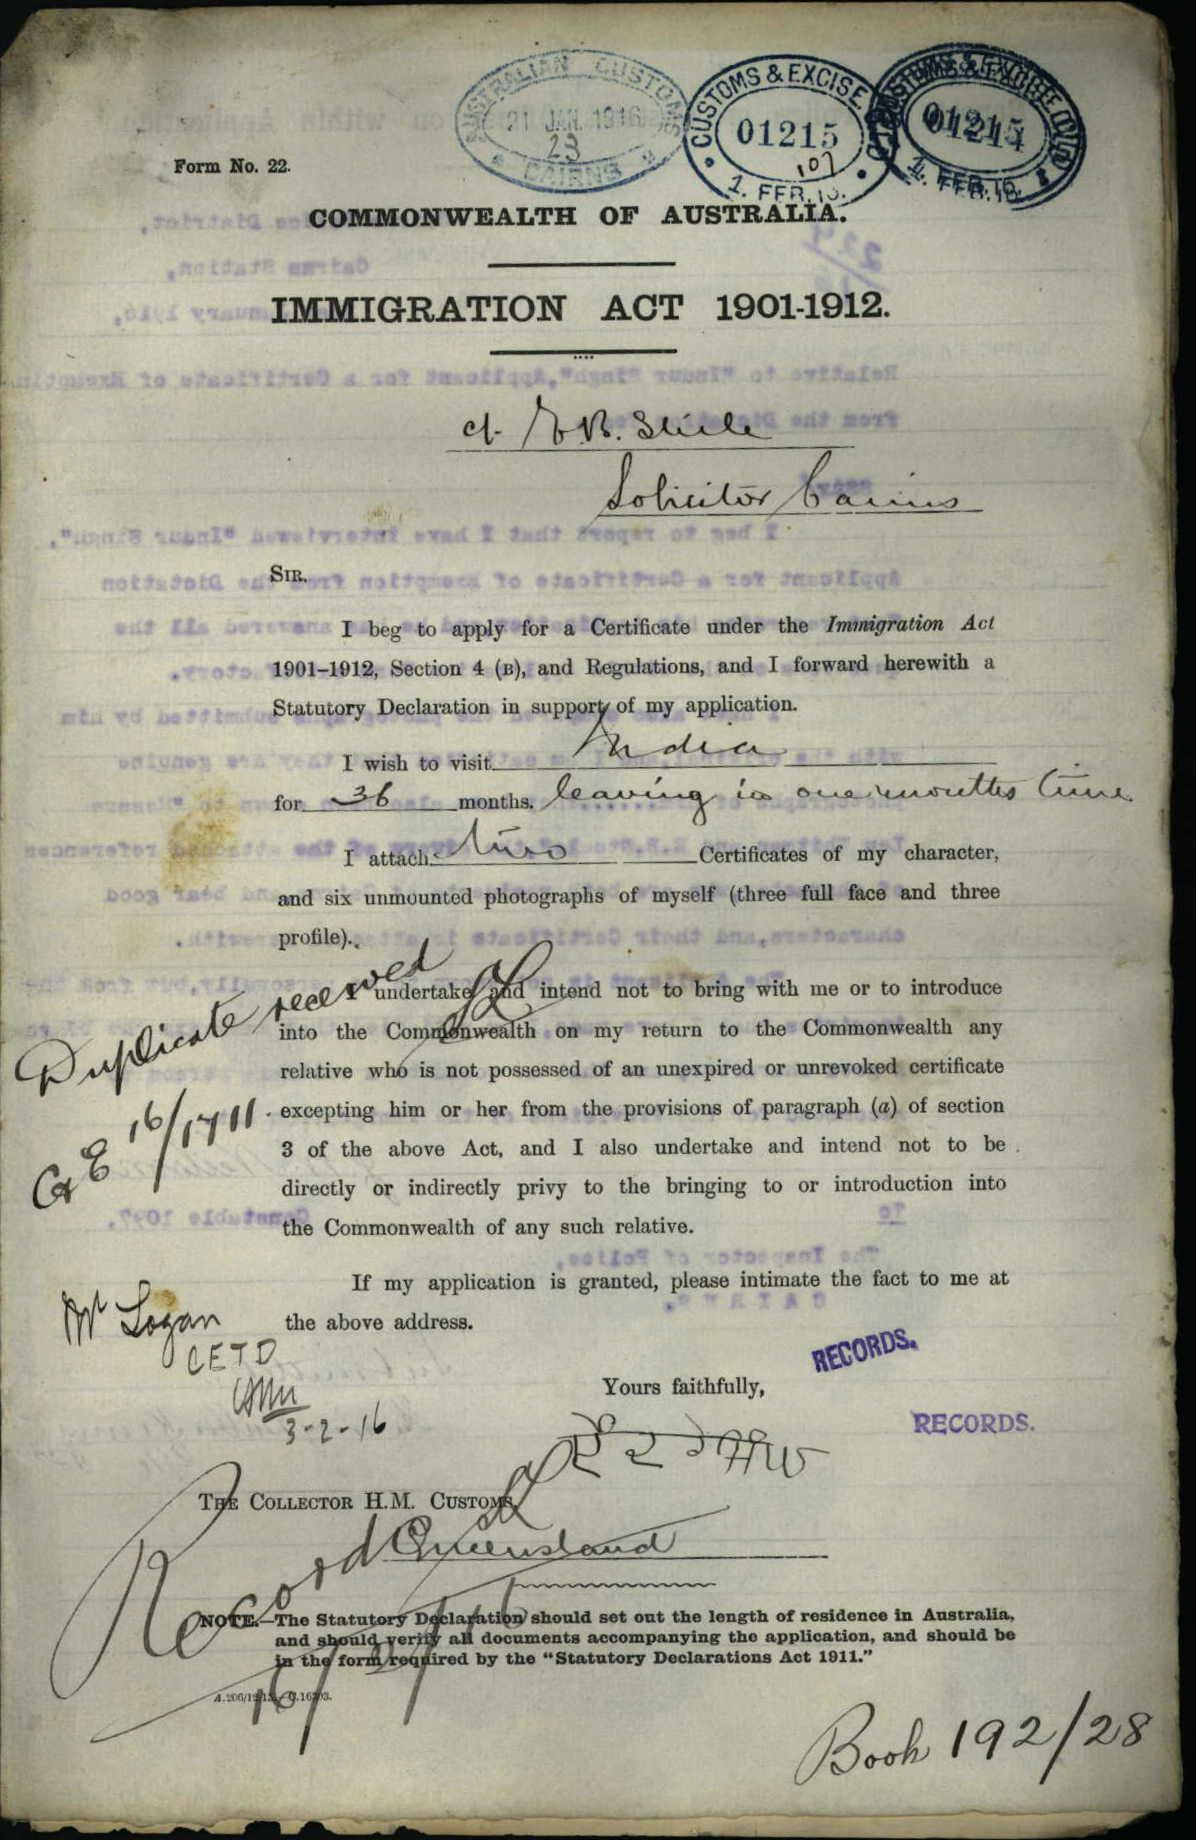 AUSTRALIAN CUSTOMS
21 JAN. 1916
23
CAIRNS
CUSTOMS & EXCISE
01215
107
1. FEB. 16.
Form No. 22.
COMMONWEALTH OF AUSTRALIA.
IMMIGRATION ACT 1901-1912.
Solicitor Cairns
SIR,
I beg to apply for a Certificate under the Immigration Act
1901–1912, Section 4 (B), and Regulations, and I forward herewith a
Statutory Declaration in support of my application.
I wish to visit India
for 36 months. leaving in one months time
I attach two Certificates of my character,
and six unmounted photographs of myself (three full face and three
profile).
Duplicate received
I undertake and intend not to bring with me or to introduce
into the Commonwealth on my return to the Commonwealth any
relative who is not possessed of an unexpired or unrevoked certificate
excepting him or her from the provisions of paragraph (a) of section
3 of the above Act, and I also undertake and intend not to be
directly or indirectly privy to the bringing to or introduction into
the Commonwealth of any such relative.
16/1711
If my application is granted, please intimate the fact to me at
the above address.
Mr Logan
CETD
3-2-16
Yours faithfully,
RECORDS.
RECORDS.
THE COLLECTOR H.M. CUSTOMS,
Queensland
Record
NOTE.—The Statutory Declaration should set out the length of residence in Australia,
and should verify all documents accompanying the application, and should be
in the form required by the “Statutory Declarations Act 1911.”
Book 192/28